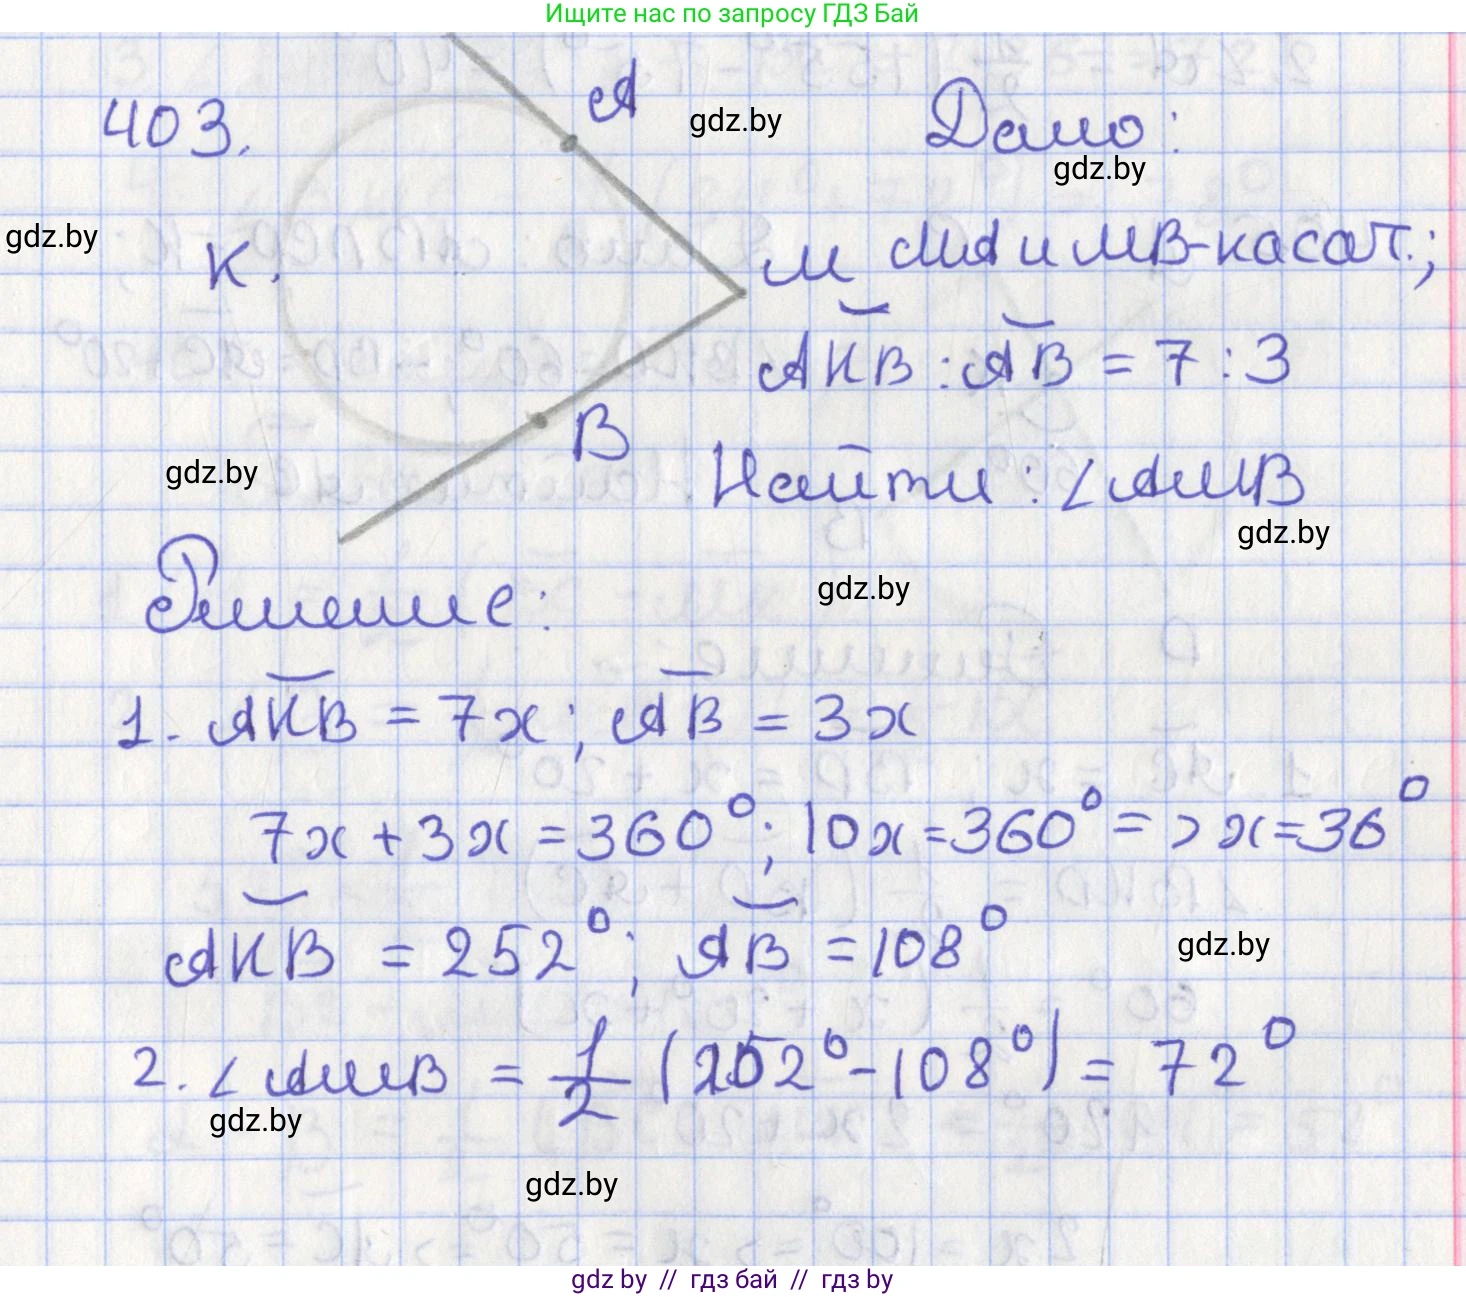 Ищите нас по запросу ГДЗ Бай
403.
A
gdz.by
Дано:
gdz.by
gdz.by
K
M
MA и MB-касат.;
AKB : AB = 7 : 3
B
gdz.by
Найти: ∠AMB
gdz.by
gdz.by
Решение:
1. AKB = 7x; AB = 3x
7x + 3x = 360°; 10x = 360° => x = 36°
AKB = 252°; AB = 108°
gdz.by
2. ∠AMB = 1/2 (252° - 108°) = 72°
gdz.by
gdz.by
gdz by // гдз бай // гдз by